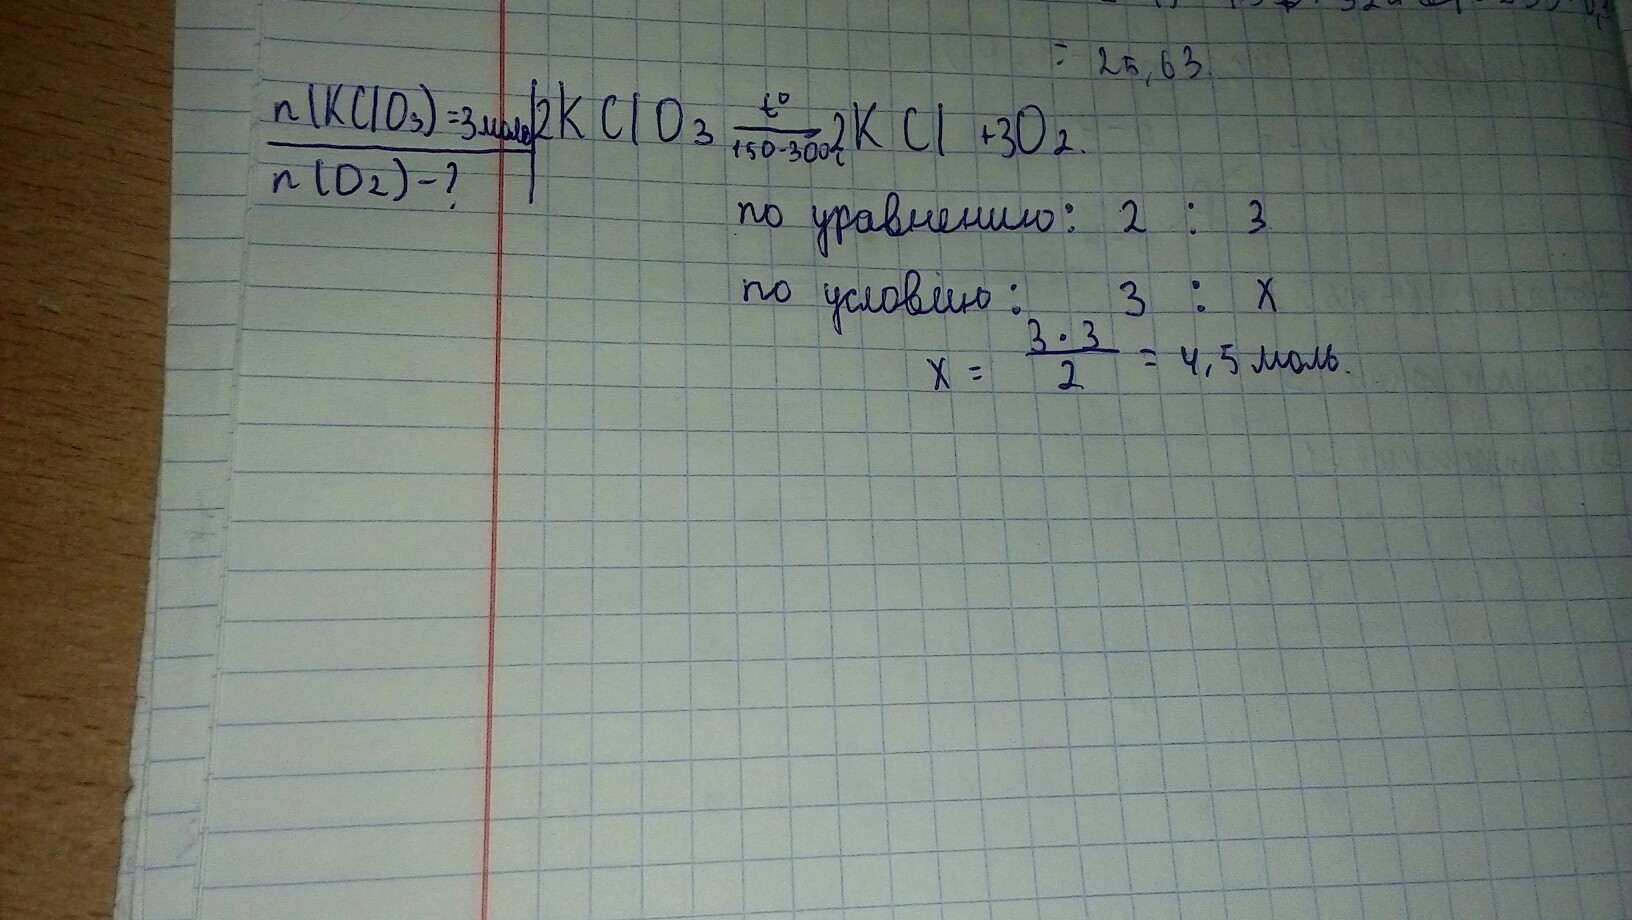 = 25,63
n(KClO₃)=3моль
2KClO₃ t° 150-300°C 2KCl +3O₂.
n(O₂)-?
по уравнению: 2 : 3
по условию: 3 : x
x = 3·3/2 = 4,5 моль.